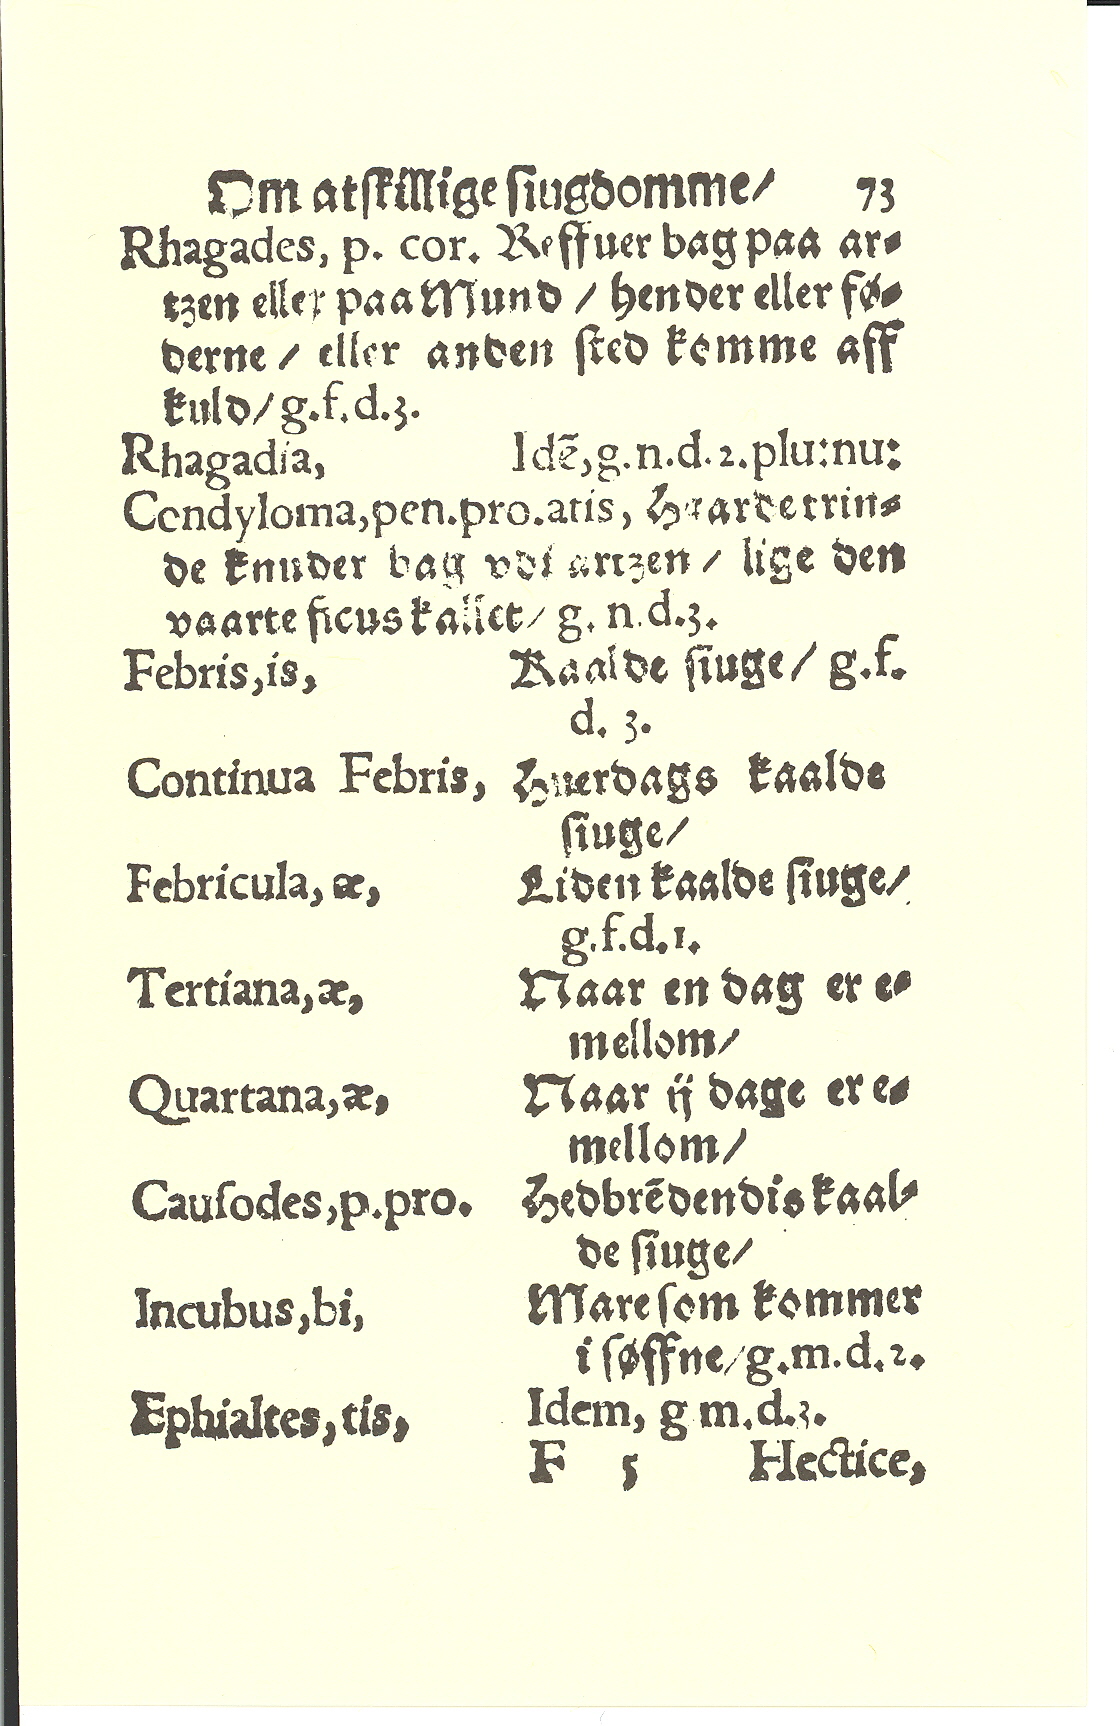 Om atſkillige ſiugdomme/ 73
Rhagades, p. cor. Reffuer bag paa ar⸗
tzen eller paa Mund / hender eller fø⸗
derne / eller anden ſted komme aff
kuld/ g.f.d.3.
Rhagadia, Idē,g.n.d.2.plu:nu:
Condyloma,pen.pro.atis, Haarde trin⸗
de knuder bag vdi artzen / lige den
vaarte ficus kallet/ g. n.d.3.
Febris,is, Kaalde ſiuge/ g.f.
d. 3.
Continua Febris, Huerdags kaalde
ſiuge/
Febricula, æ, Liden kaalde ſiuge/
g.f.d.1.
Tertiana,æ, Naar en dag er e⸗
mellom/
Quartana,æ, Naar ij dage er e⸗
mellom/
Cauſodes,p.pro. Hedbrēdendis kaal⸗
de ſiuge/
Incubus,bi, Mare ſom kommer
i ſøffne/g.m.d.2.
Ephialtes,tis, Idem, g m.d.3.
F 5 Hectice,